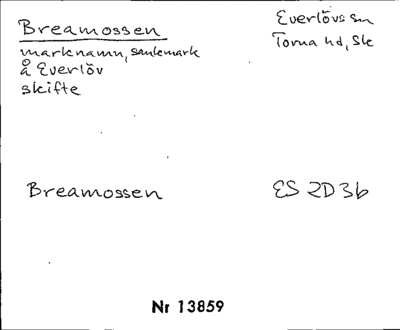 Breamossen
Everlövs sn
marknamn, sankmark
Torna hd, Sk
å Everlöv
skifte
Breamossen
ES 2D3b
Nr 13859